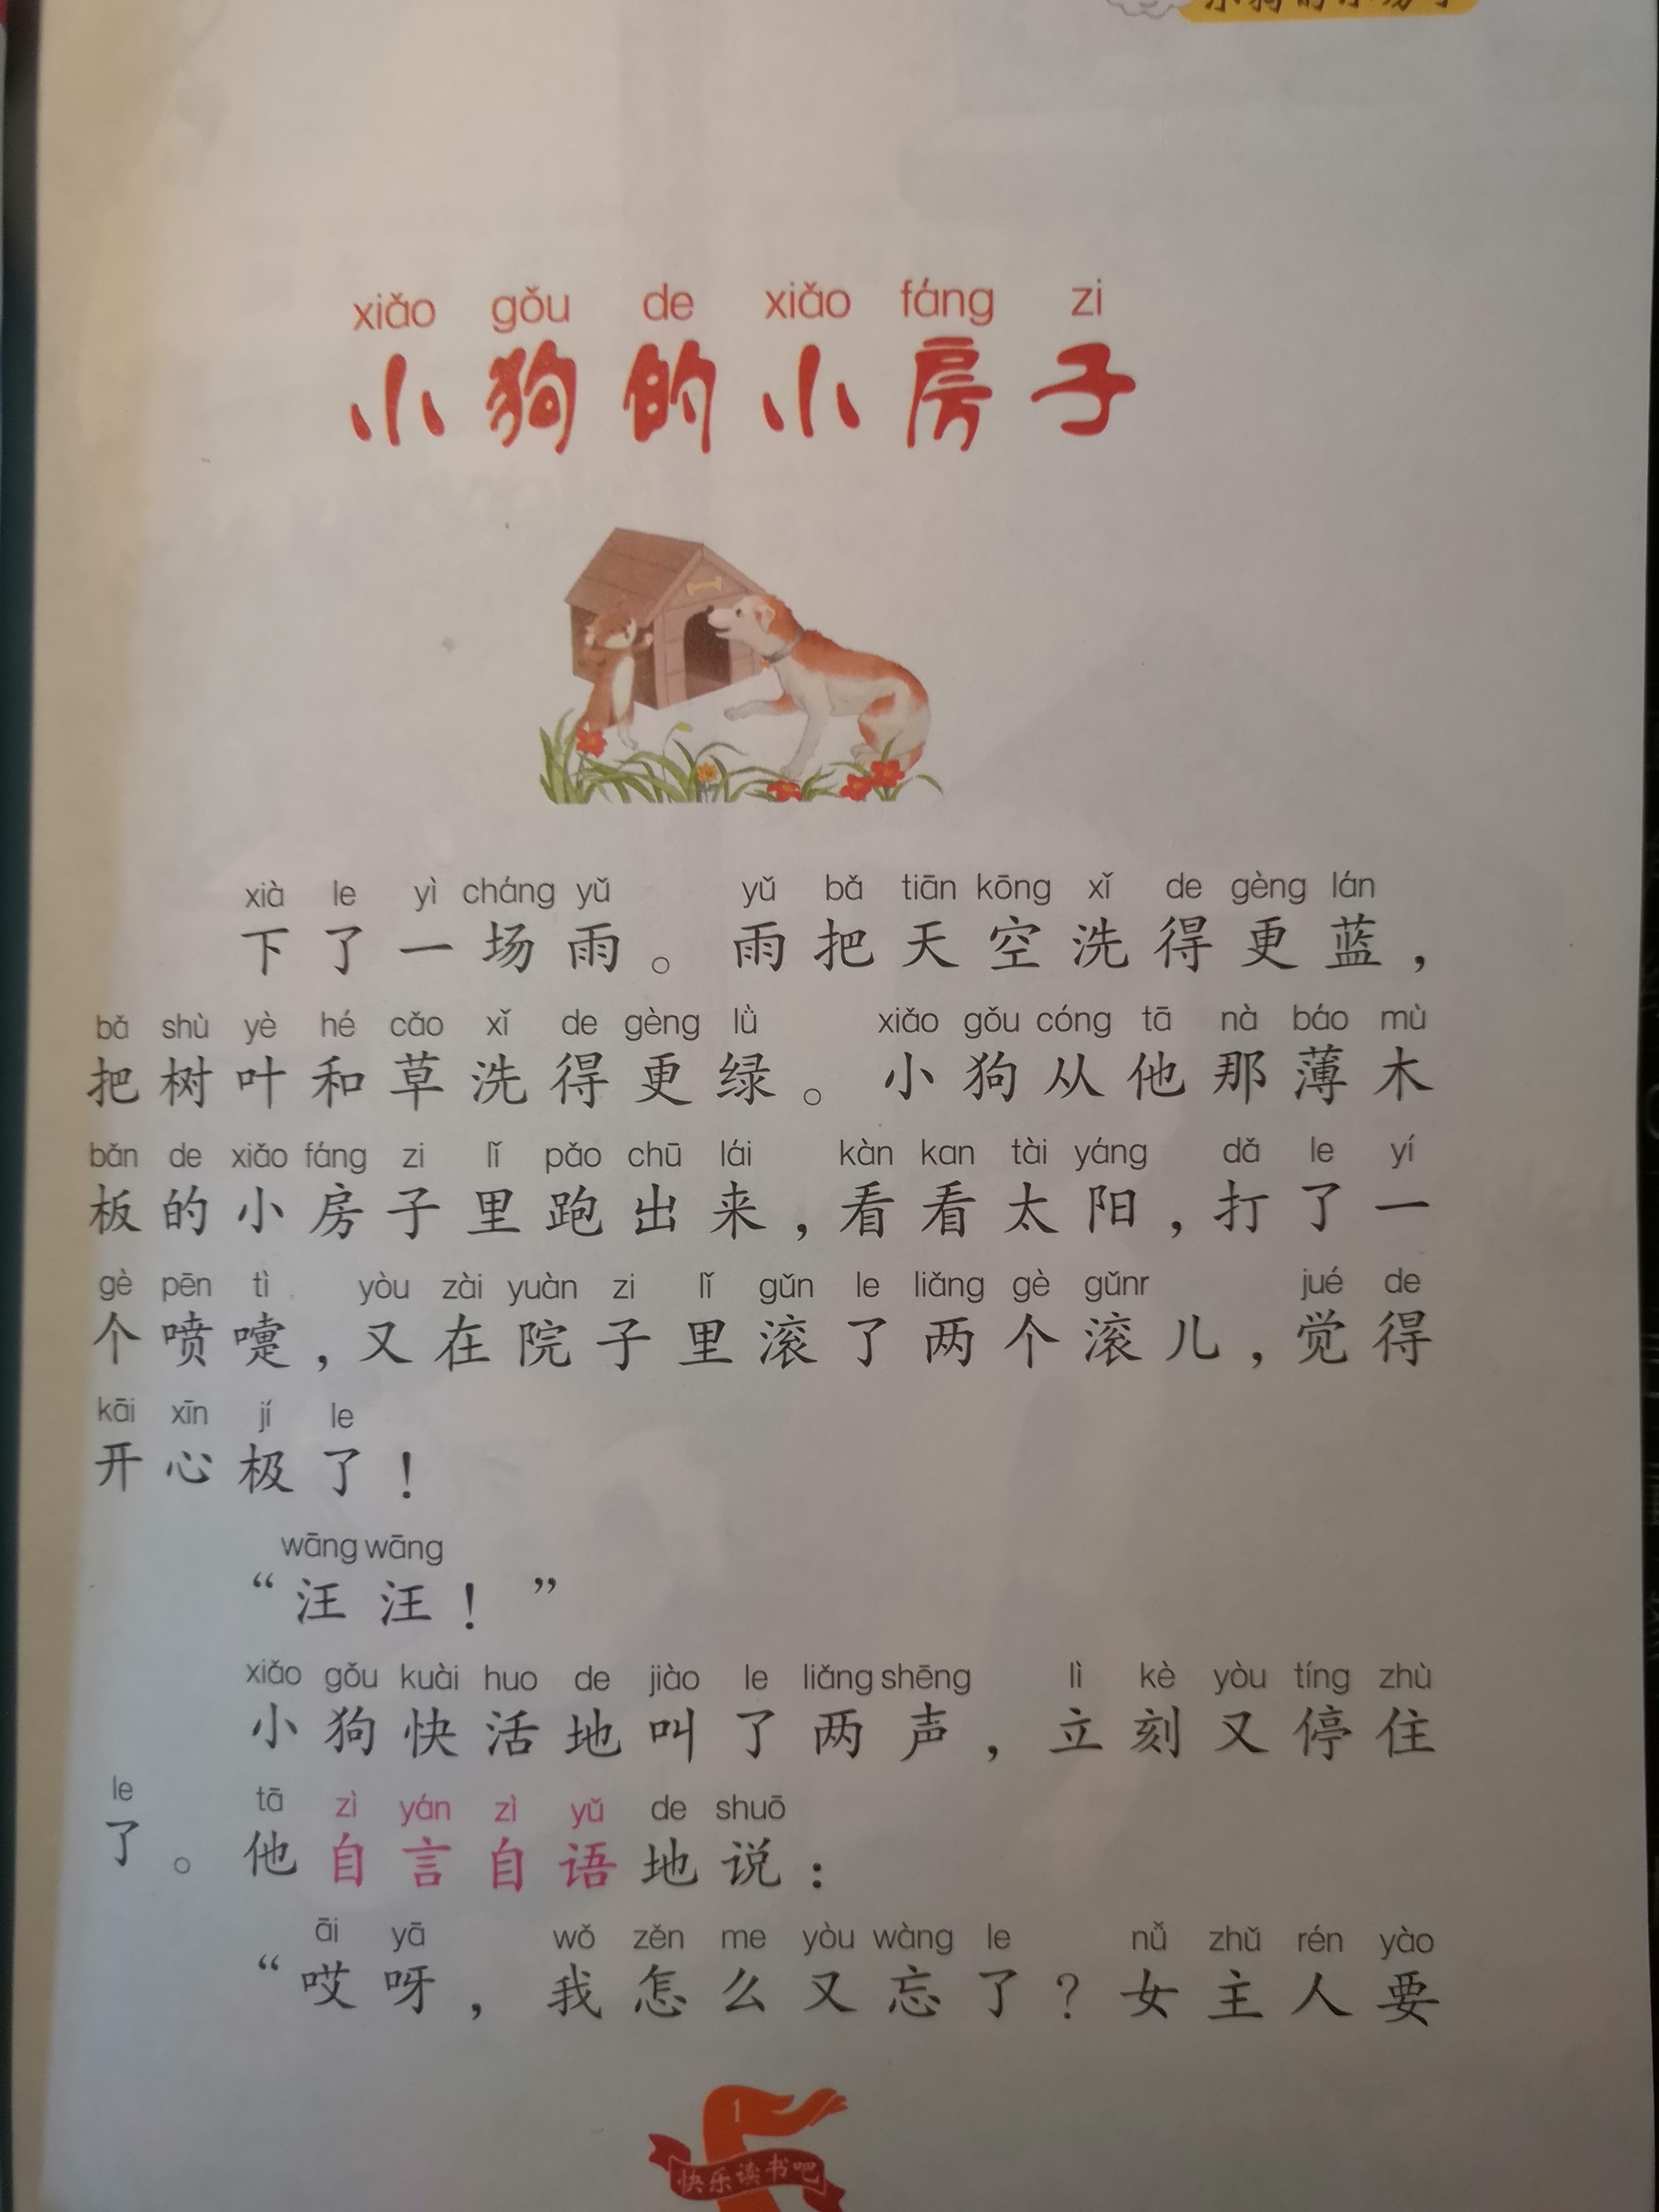 小狗的小房子
xiǎo gǒu de xiǎo fáng zi
小狗的小房子
xià le yì cháng yǔ yǔ bǎ tiān kōng xǐ de gèng lán
下了一场雨。雨把天空洗得更蓝，
bǎ shù yè hé cǎo xǐ de gèng lǜ xiǎo gǒu cóng tā nà báo mù
把树叶和草洗得更绿。小狗从他那薄木
bǎn de xiǎo fáng zi lǐ pǎo chū lái kàn kan tài yáng dǎ le yí
板的小房子里跑出来，看看太阳，打了一
gè pēn tì yòu zài yuàn zi lǐ gǔn le liǎng gè gǔnr jué de
个喷嚏，又在院子里滚了两个滚儿，觉得
kāi xīn jí le
开心极了！
wāng wāng
“汪汪！”
xiǎo gǒu kuài huo de jiào le liǎng shēng lì kè yòu tíng zhù
小狗快活地叫了两声，立刻又停住
le tā zì yán zì yǔ de shuō
了。他自言自语地说：
āi yā wǒ zěn me yòu wàng le nǚ zhǔ rén yào
“哎呀，我怎么又忘了？女主人要
1
快乐读书吧